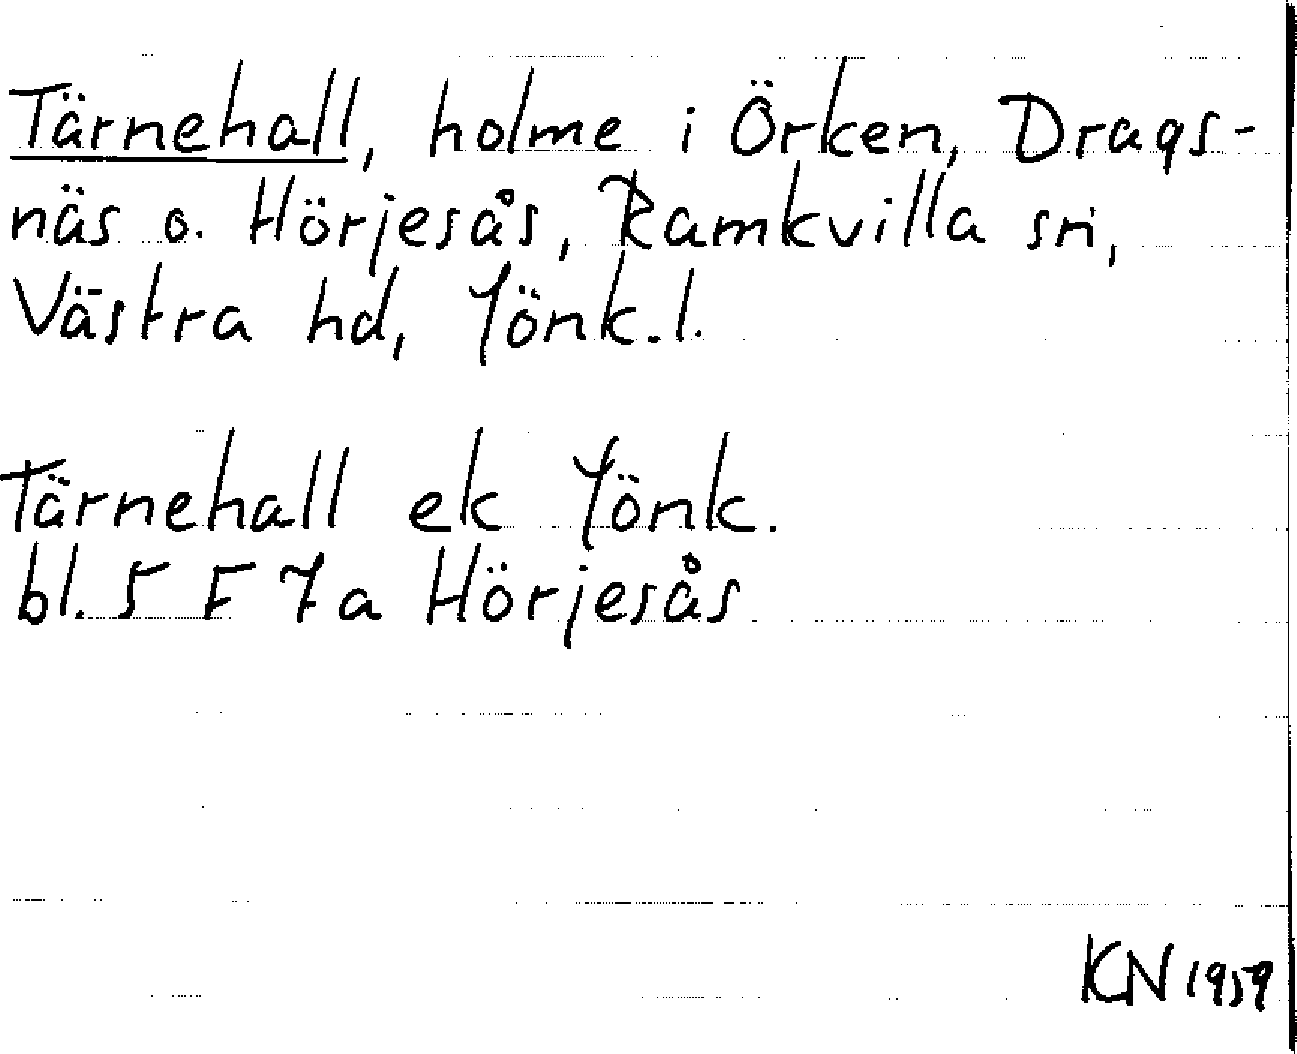 Tärnehall, holme i Örken, Drags-
näs o. Hörjesås, Ramkvilla sn,
Västra hd, Jönk. l.
Tärnehall ek Jönk.
bl. 5 F 7a Hörjesås
KN 1959